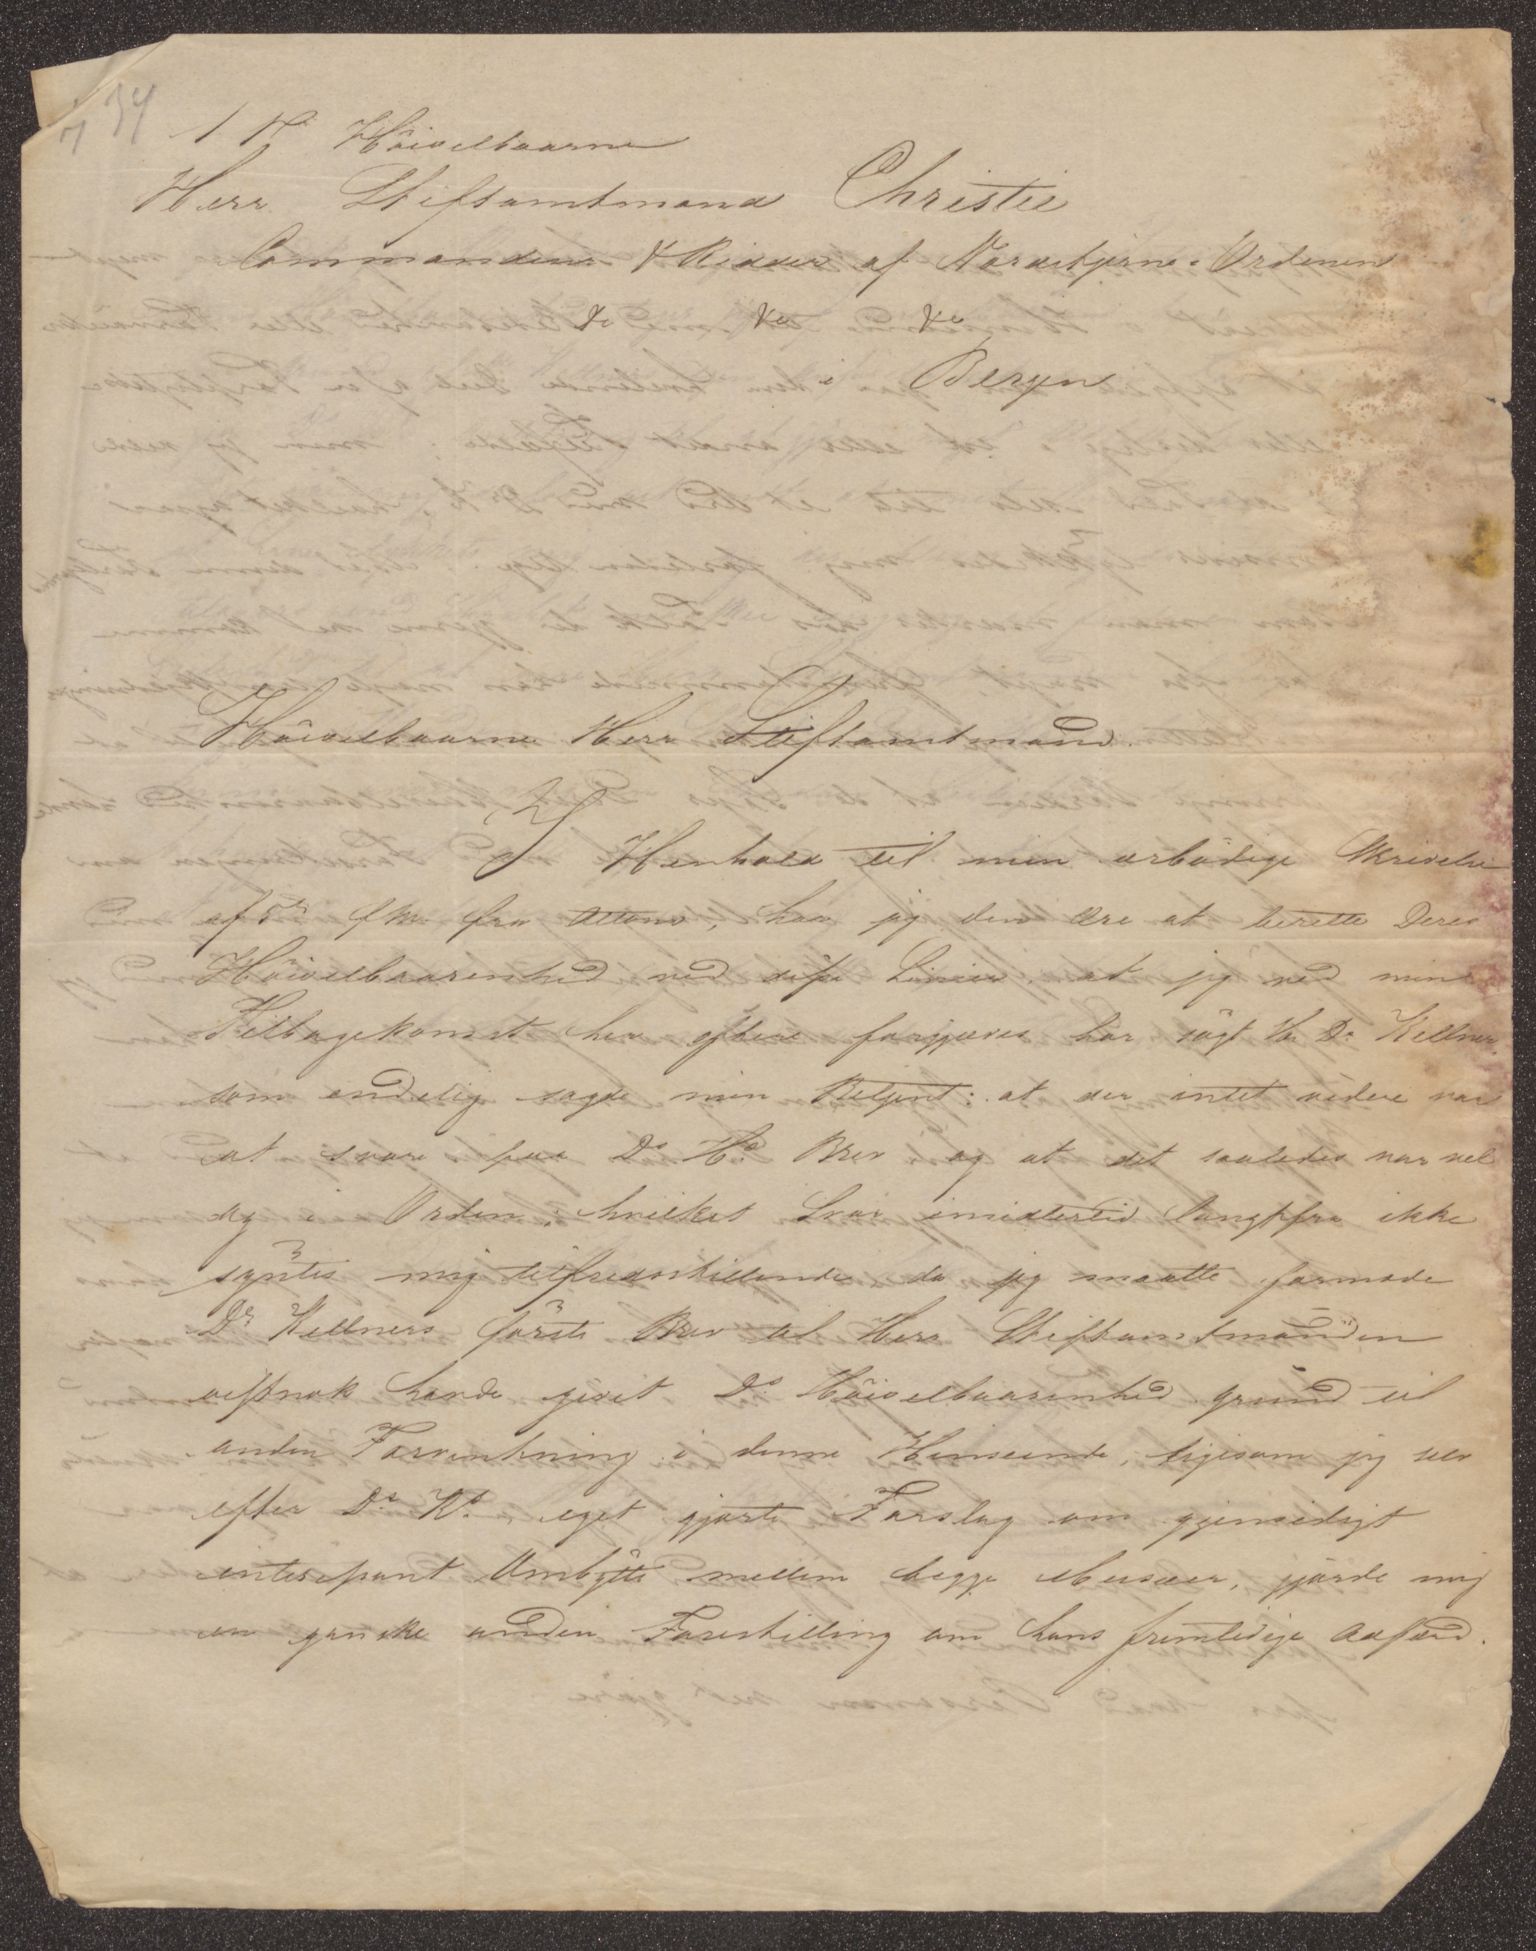 34
7
S T. Höivelbaarne
Herr Stiftsamtmand Christie
Commandeur & Ridder af Nordstjerne-Ordenen
&c &c &c
i Bergen
Höivelbaarne Herr Stiftsamtmand.
I Henhold til min ærbödige Skrivelse
af 5te f. M. fra Altona, har jeg den Ære at berette Deres
Höivelbaarenhed ved disse Linier, at jeg ved min
Tilbagekomst her oftere forgjæves har sögt Hr. Dr Kellner,
som endelig sagde min Betjent: at der intet videre var
at svare paa Ds Hs Brev og at det saaledes var vel
og i Orden; hvilket Svar imidlertid langtfra ikke
syntes mig tilfredsstillende da jeg maatte formode
Dr Kellners förste Brev til Herr Stiftsamtmanden
vistnok havde givet Ds Höivelbaarenhed Grund til
anden Forventning i denne Henseende, ligesom jeg selv
efter Ds Ks eget gjorte Forslag om gjensidigt
interessant Ombytte mellem begge Museer, gjorde mig
en ganske anden Forestilling om hans fremtidige Adfærd.